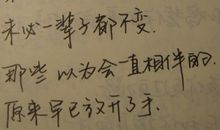 未必一辈子都不变.
那些以为会一直相伴的.
原来早已放开了手.